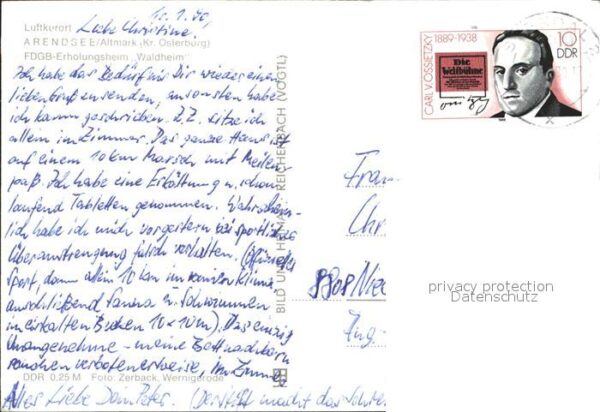 10.1.90
Liebe Christine!
Luftkurort
ARENDSEE/Altmark (Kr. Osterburg)
FDGB-Erholungsheim „Waldheim"
Ich habe das Bedürfnis Dir wieder einen
lieben Gruß zu senden, ansonsten habe
ich kaum geschrieben. Z.Z. sitze ich
allein im Zimmer. Das ganze Haus ist
auf einem 10 km Marsch mit Meilen-
paß. Ich habe eine Erkältung u. schon
laufend Tabletten genommen. Wahrschein-
lich habe ich mich vorgestern bei sportlicher
Überanstrengung falsch verhalten. (
Sport, dann allein 10 km im
anschließend Sauna u. Schwimmen
im eiskalten Becken 10 x 10 m). Das einzig
Unangenehme - meine Bettnachbarn
rauchen verbotenerweise, im Zimmer
DDR 0,25 M Foto: Zerback, Wernigerode
Alles Liebe Dein Peter. (Der macht das
BILD UND HEIMAT REICHENBACH (VOGTL)
CARL V. OSSIETZKY 1889-1938
Die
Weltbühne
10
DDR
Frau
Chr
Ing.-
privacy protection
Datenschutz